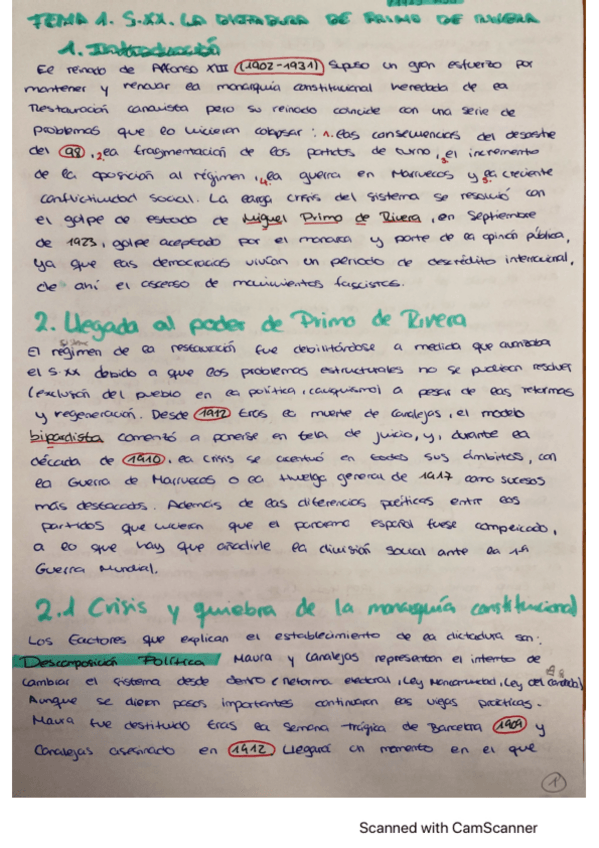 TEMA 1. S.XX. LA DICTADURA DE PRIMO DE RIVERA
1. Introducción
El reinado de Alfonso XIII (1902-1931) supuso un gran esfuerzo por
mantener y renovar la monarquía constitucional heredada de la
Restauración canovista pero su reinado coincide con una serie de
problemas que lo hicieron colapsar: 1. las consecuencias del desastre
del 98, 2 la fragmentación de los partidos de turno, 3 el incremento
de la oposición al régimen, 4 la guerra en Marruecos y 5 la creciente
conflictividad social. La larga crisis del sistema se resolvió con
el golpe de estado de Miguel Primo de Rivera, en Septiembre
de 1923, golpe aceptado por el monarca y parte de la opinión pública,
ya que las democracias vivían un periodo de descrédito internacional,
de ahí el ascenso de movimientos fascistas.
2. Llegada al poder de Primo de Rivera
El régimen de la restauración fue debilitándose a medida que avanzaba
el S.XX debido a que los problemas estructurales no se pudieron resolver
(exclusión del pueblo en la política, caciquismo) a pesar de las reformas
y regeneración. Desde 1912 tras la muerte de Canalejas, el modelo
bipardista comentó a ponerse en tela de juicio, y, durante la
década de 1910, la crisis se acentuó en todos sus ámbitos, con
la Guerra de Marruecos o la Huelga general de 1917 como sucesos
más destacados. Además de las diferencias políticas entre los
partidos que hicieran que el panorama español fuese complicado,
a lo que hay que añadirle la división social ante la 1ª
Guerra Mundial.
2.1 Crisis y quiebra de la monarquía constitucional
Los factores que explican el establecimiento de la dictadura son:
Descomposición Política Maura y Canalejas representan el intento de
cambiar el sistema desde dentro (reforma electoral, Ley Mancomunidad, Ley del candado)
Aunque se dieron pasos importantes continuaron las viejas prácticas.
Maura fue destituido tras la Semana Trágica de Barcelona 1909 y
Canalejas asesinado en 1912. Llegará un momento en el que
1
Scanned with CamScanner